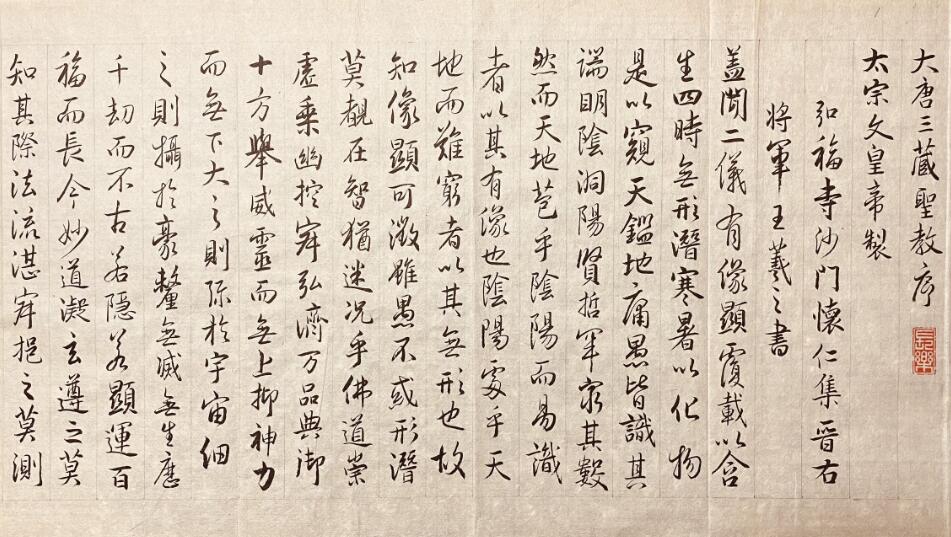 大唐三藏聖教序
長樂
太宗文皇帝製
弘福寺沙門懷仁集晉右
将軍王羲之書
盖聞二儀有像顯覆載以含
生四時無形潛寒暑以化物
是以窺天鑑地庸愚皆識其
端明陰洞陽賢哲罕窮其數
然而天地苞乎陰陽而易識
者以其有像也陰陽處乎天
地而難窮者以其無形也故
知像顯可徵雖愚不惑形潛
莫覩在智猶迷况乎佛道崇
虛乘幽控寂弘濟万品典御
十方舉威靈而無上抑神力
而無下大之則弥於宇宙細
之則攝於豪釐無滅無生歷
千劫而不古若隱若顯運百
福而長今妙道凝玄遵之莫
知其際法流湛寂挹之莫測